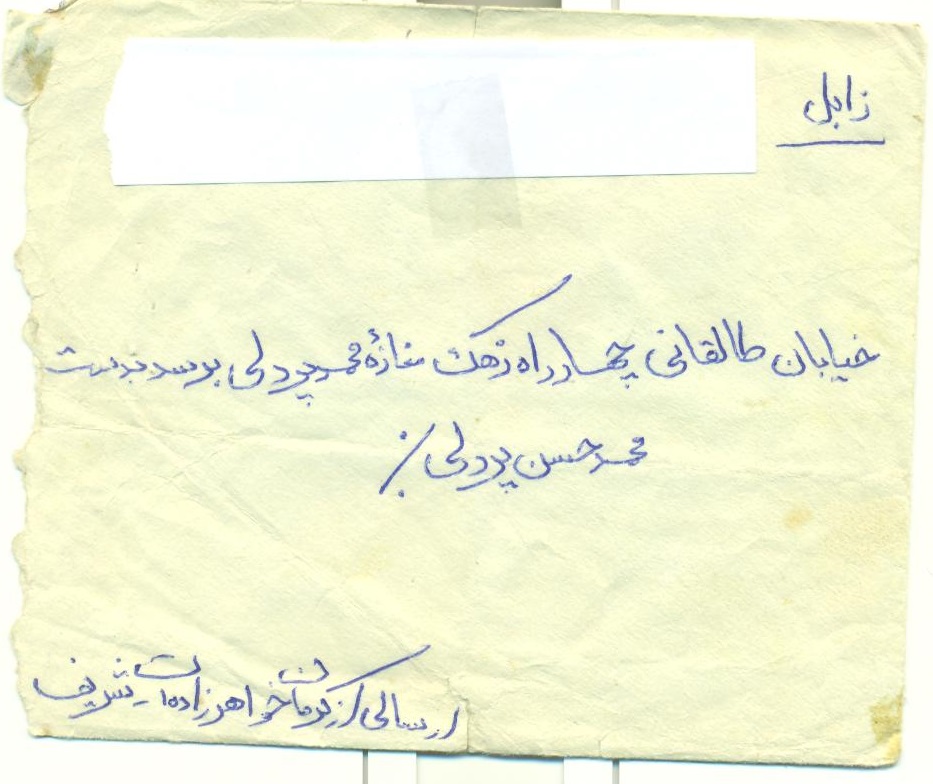 زابل
خیابان طالقانی چهارراه زهک مغازهٔ محمد پردلی برسد بدست
محمد حسن پردلی /.
ارسالی از کرمان خواهرزاده‌ات شریف